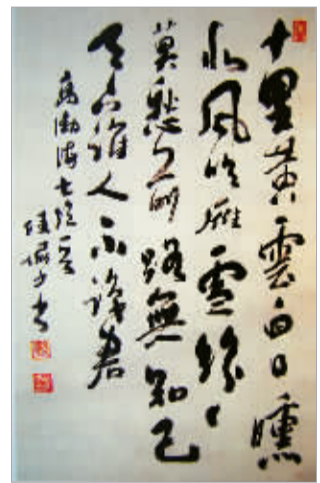 十里黄雲白日曛
北風吹雁雪紛紛
莫愁前路無知己
天下誰人不識君
高渤海七絶一首
書